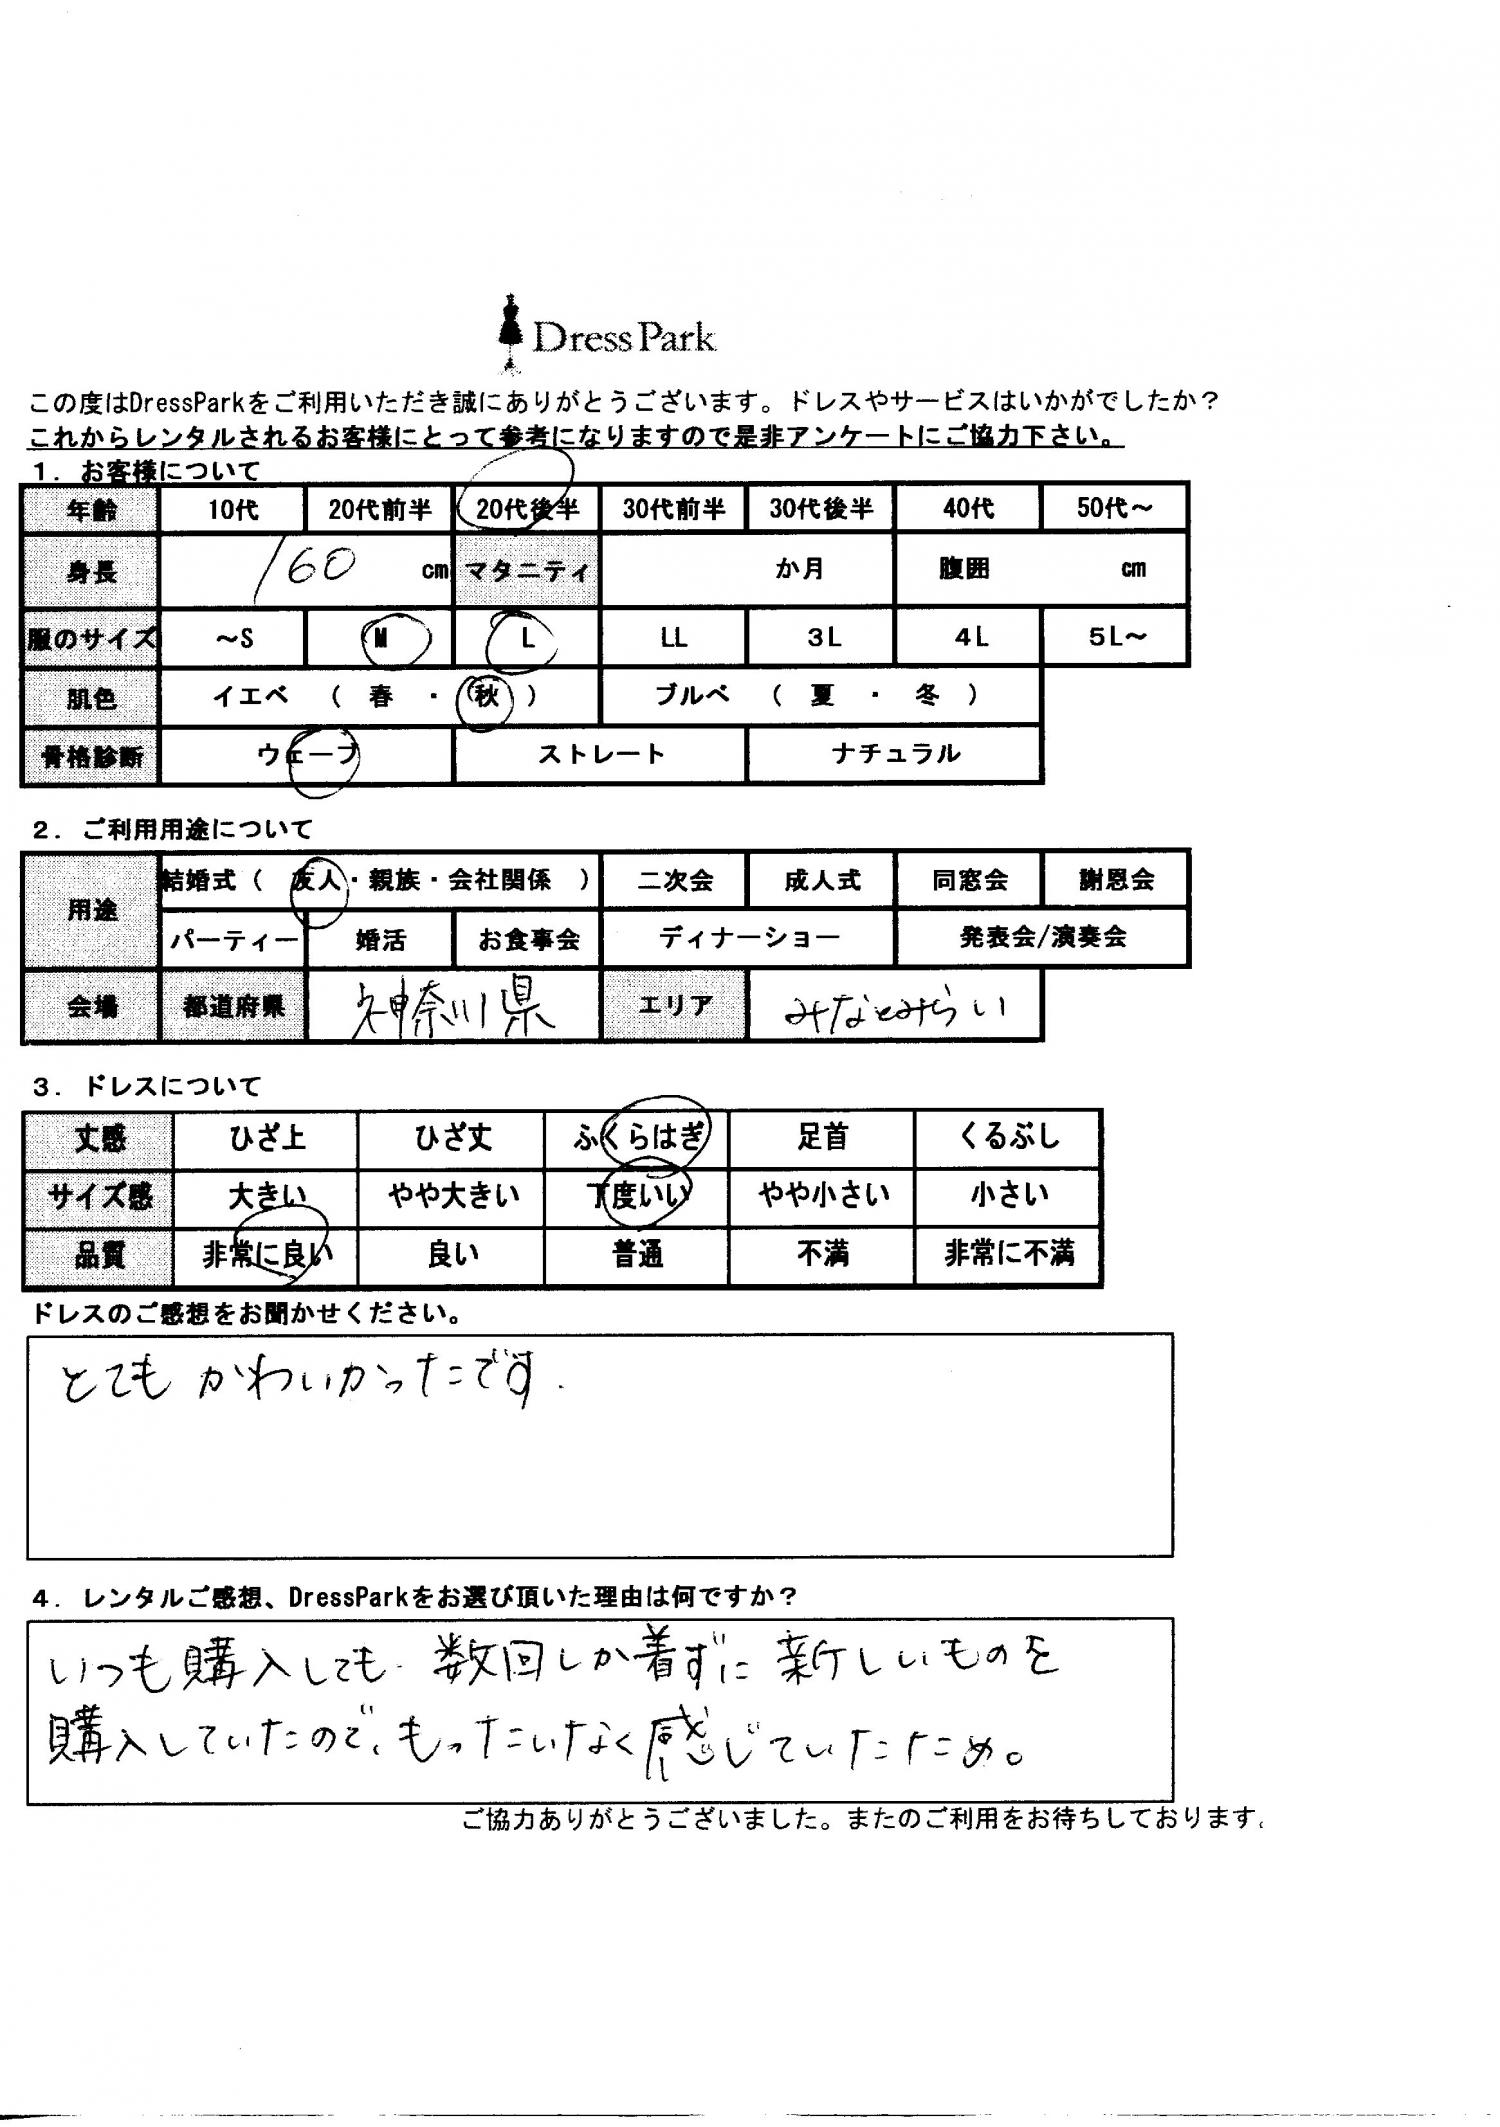 Dress Park
この度はDressParkをご利用いただき誠にありがとうございます。ドレスやサービスはいかがでしたか？
これからレンタルされるお客様にとって参考になりますので是非アンケートにご協力下さい。
1. お客様について
年齢 10代 20代前半 20代後半 30代前半 30代後半 40代 50代～
身長 160 cm マタニティ か月 腹囲 cm
服のサイズ ～S M L LL 3L 4L 5L～
肌色 イエベ （ 春 ・ 秋 ） ブルベ （ 夏 ・ 冬 ）
骨格診断 ウェーブ ストレート ナチュラル
2. ご利用用途について
用途 結婚式（ 友人・親族・会社関係 ） 二次会 成人式 同窓会 謝恩会
パーティー 婚活 お食事会 ディナーショー 発表会/演奏会
会場 都道府県 神奈川県 エリア みなとみらい
3. ドレスについて
丈感 ひざ上 ひざ丈 ふくらはぎ 足首 くるぶし
サイズ感 大きい やや大きい 丁度いい やや小さい 小さい
品質 非常に良い 良い 普通 不満 非常に不満
ドレスのご感想をお聞かせください。
とても かわいかったです.
4. レンタルご感想、DressParkをお選び頂いた理由は何ですか？
いつも購入しても 数回しか着ずに 新しいものを
購入していたので、もったいなく感じていたため。
ご協力ありがとうございました。またのご利用をお待ちしております。